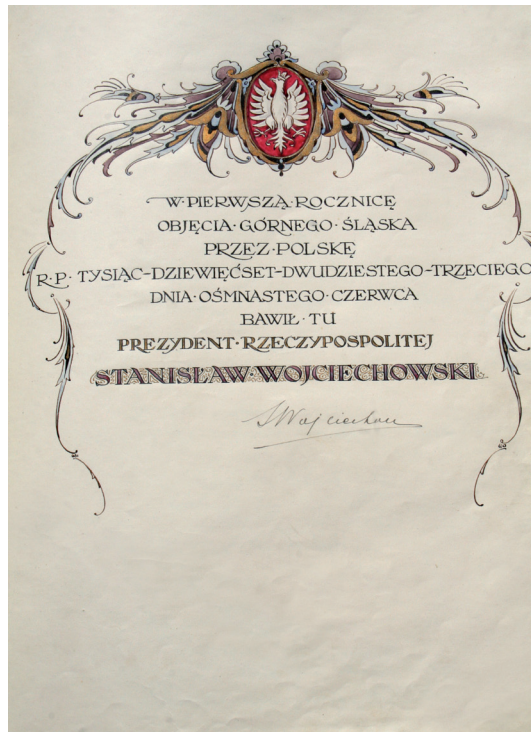 W·PIERWSZĄ·ROCZNICĘ
OBJĘCIA·GÓRNEGO·ŚLĄSKA
PRZEZ·POLSKĘ
R·P· TYSIĄC-DZIEWIĘĆSET-DWUDZIESTEGO-TRZECIEGO
DNIA·OŚMNASTEGO·CZERWCA
BAWIŁ·TU
PREZYDENT·RZECZYPOSPOLITEJ
STANISŁAW·WOJCIECHOWSKI
SWojciechow